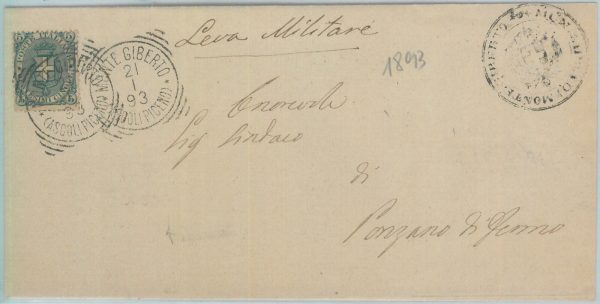 Leva Militare
1893
MONTE GIBERTO
21
1
93
(ASCOLI PICENO)
93
(ASCOLI PICENO)
Onorevole
Sig Sindaco
di
Ponzano di Fermo